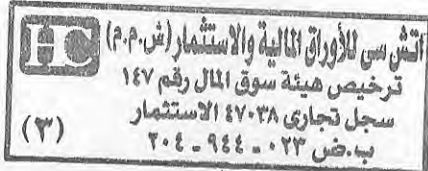 اتش سى للأوراق المالية والاستثمار (ش.م.م) HC
ترخيص هيئة سوق المال رقم ١٤٧
سجل تجارى ٤٧٠٣٨ الاستثمار
ب.ض ٠٢٣ - ٩٤٤ - ٢٠٤
(٣)